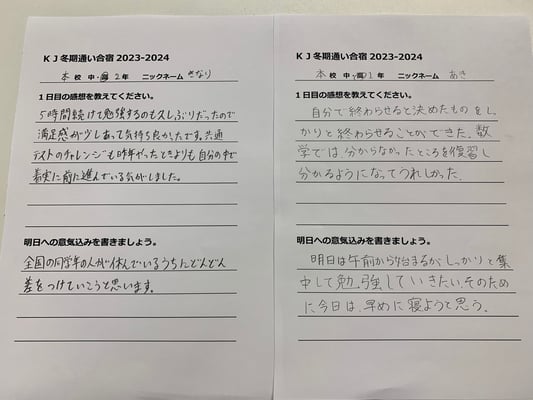 KJ冬期通い合宿 2023-2024
本 校 中・高 2 年 ニックネーム きなり
1日目の感想を教えてください。
5時間続けて勉強するのも久しぶりだったので
満足感が少しあって気持ち良かったです。共通
テストのチャレンジも昨年やったときよりも自分の中で
着実に前に進んでいる気がしました。
明日への意気込みを書きましょう。
全国の同学年の人が休んでいるうちにどんどん
差をつけていこうと思います。
KJ冬期通い合宿 2023-2024
本 校 中・高 1 年 ニックネーム あき
1日目の感想を教えてください。
自分で終わらせると決めたものをしっ
かりと終わらせることができた。数
学では、分からなかったところを復習し
分かるようになってうれしかった。
明日への意気込みを書きましょう。
明日は午前から始まるが、しっかりと集
中して勉強していきたい。そのため
に、今日は、早めに寝ようと思う。